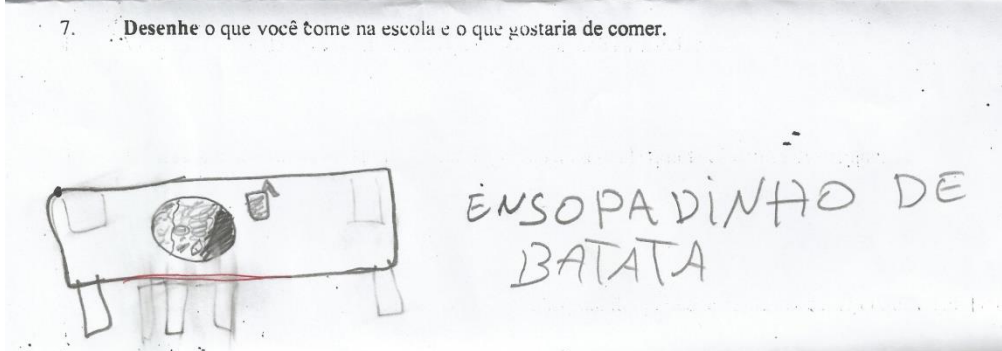 7. Desenhe o que você come na escola e o que gostaria de comer.
ENSOPADINHO DE
BATATA